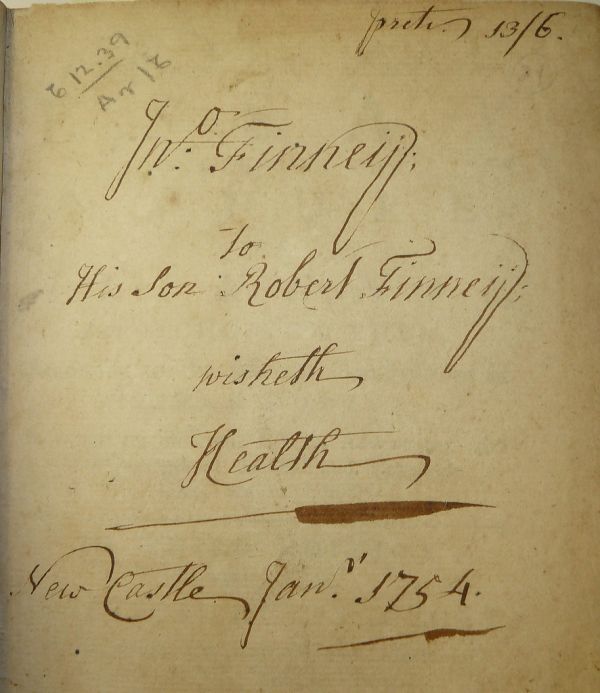 preti. 13/6.
612.39
Ar18
Jno. Finney;
To
His Son Robert Finney;
wisheth
Health
New Castle Janry. 1754.